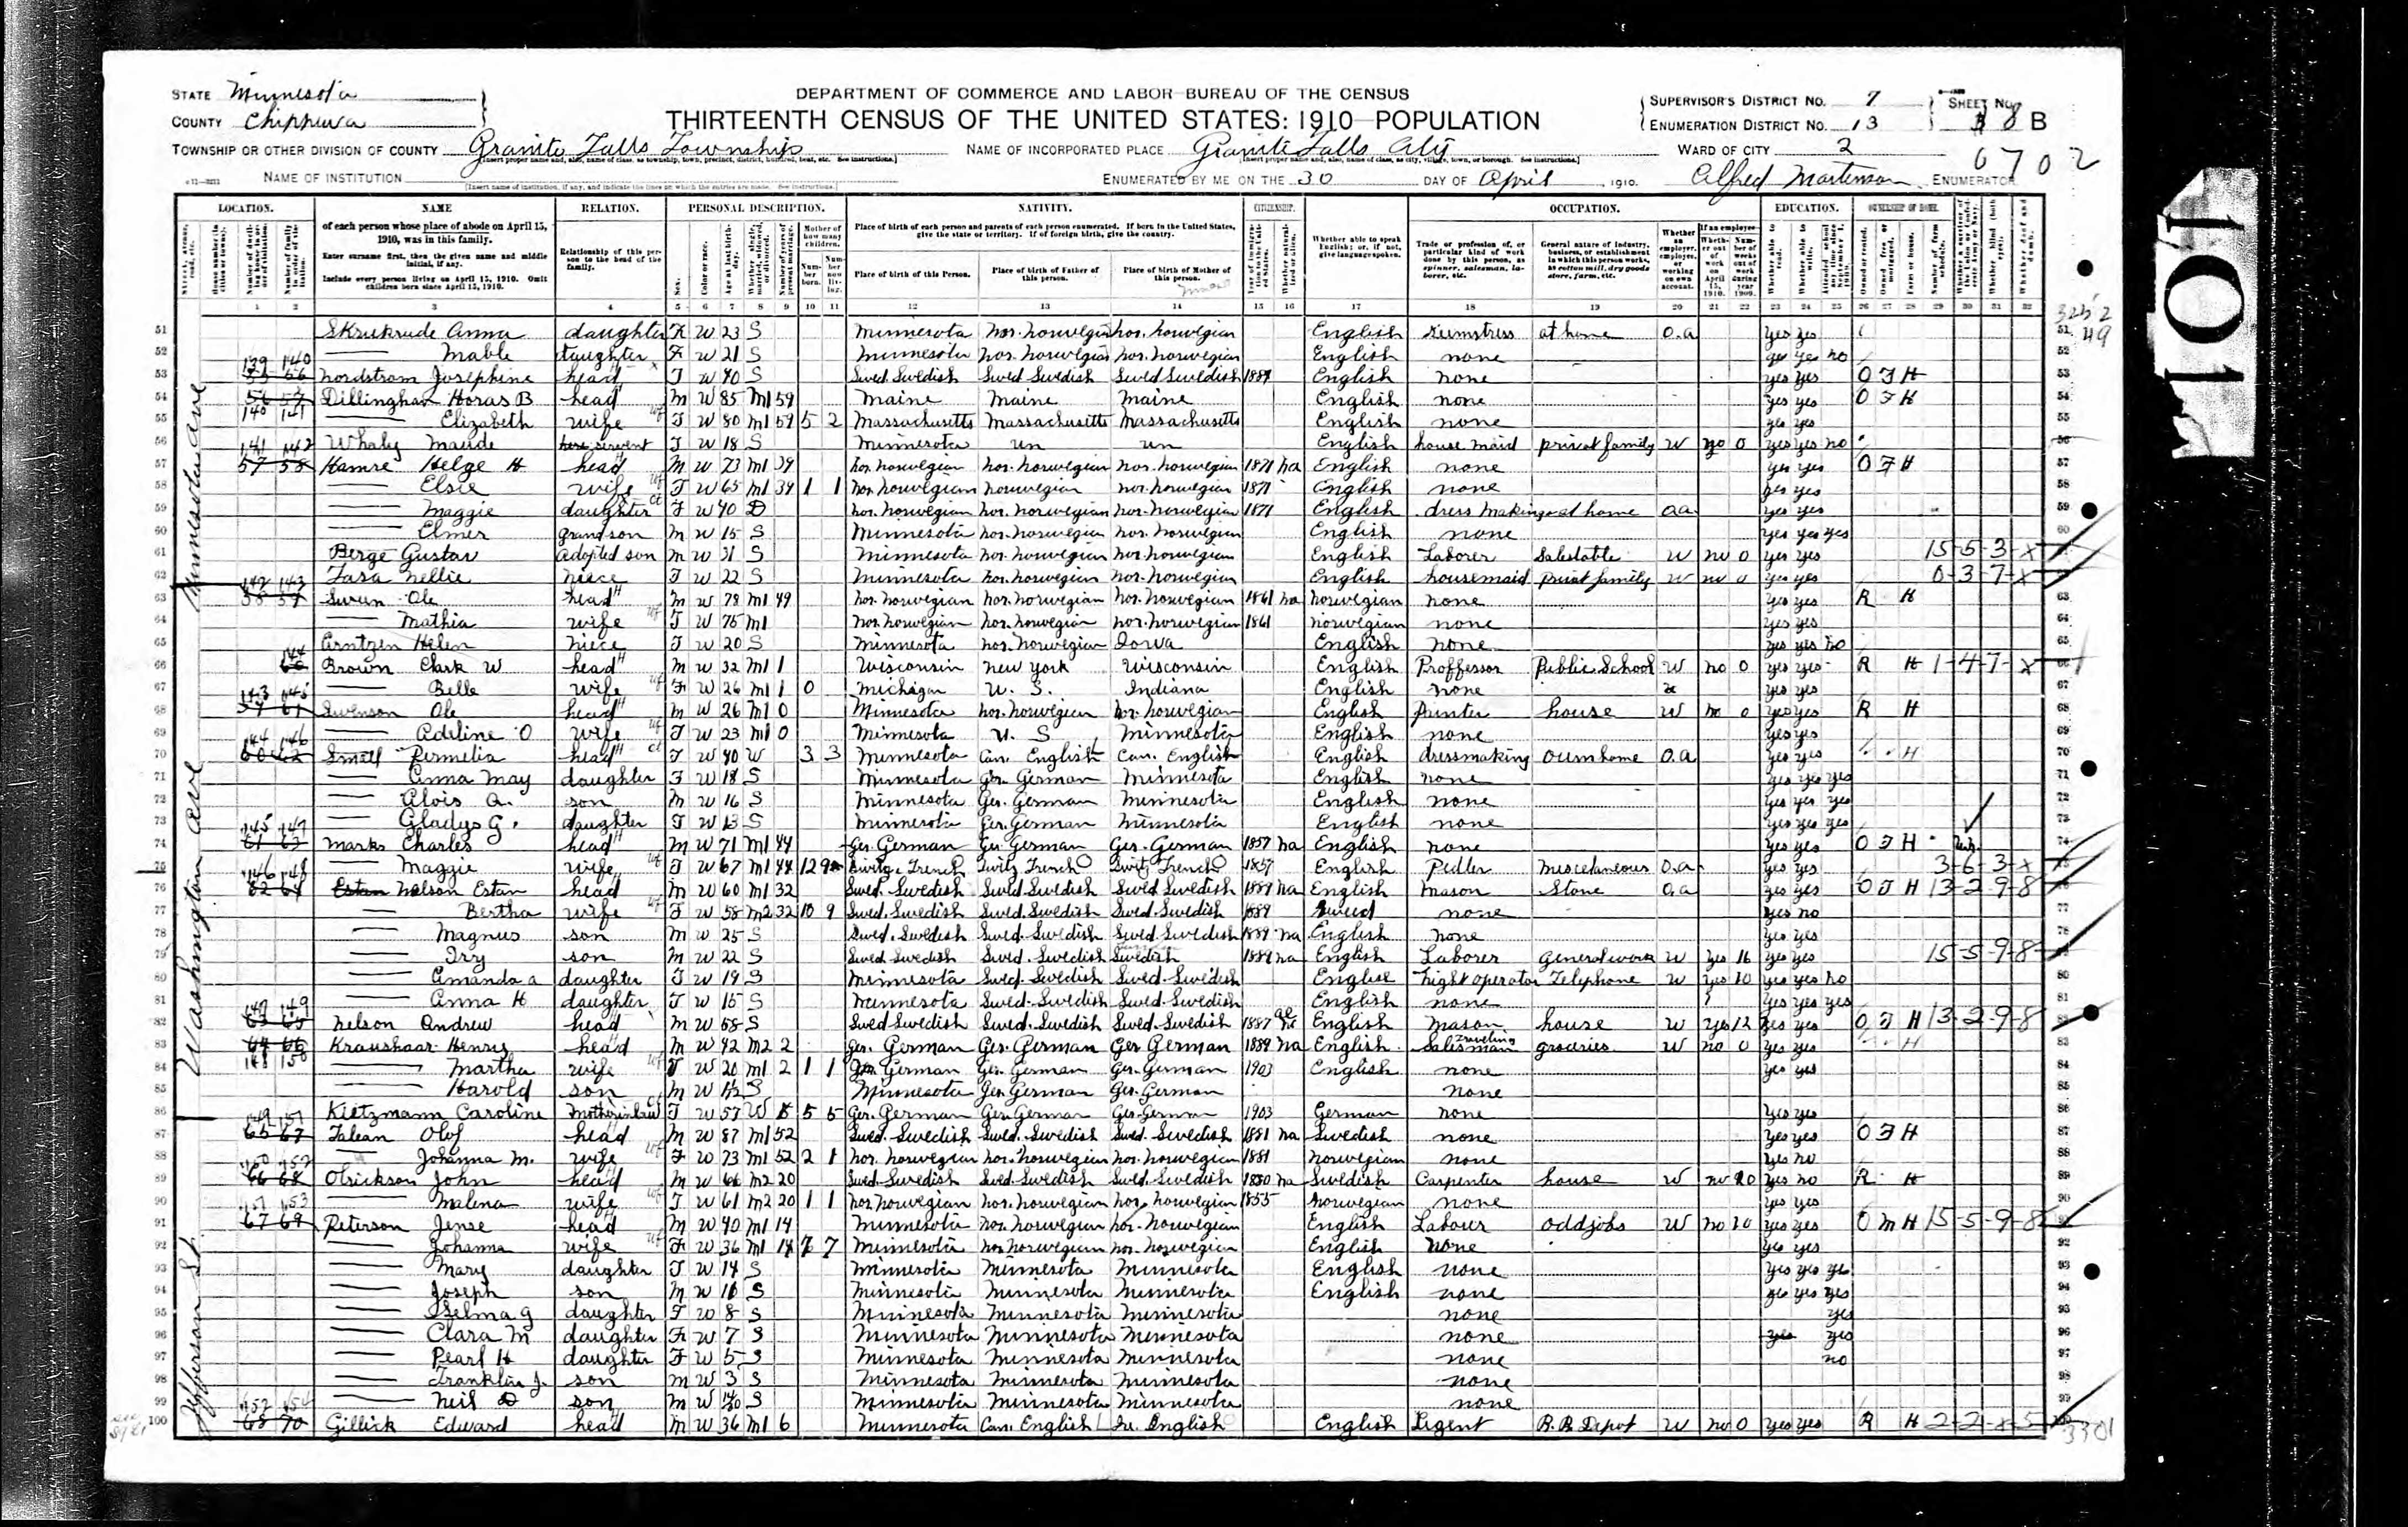 DEPARTMENT OF COMMERCE AND LABOR—BUREAU OF THE CENSUS
THIRTEENTH CENSUS OF THE UNITED STATES: 1910—POPULATION
STATE Minnesota
COUNTY Chippewa
TOWNSHIP OR OTHER DIVISION OF COUNTY Granite Falls Township
NAME OF INCORPORATED PLACE Granite Falls City
SUPERVISOR'S DISTRICT No. 7
ENUMERATION DISTRICT No. 13
SHEET No. 8 B
WARD OF CITY 2
6702
NAME OF INSTITUTION
ENUMERATED BY ME ON THE 30 DAY OF April, 1910. Alfred Martenson, ENUMERATOR
LOCATION. NAME RELATION. PERSONAL DESCRIPTION. NATIVITY. CITIZENSHIP. OCCUPATION. EDUCATION. OWNERSHIP OF HOME.
of each person whose place of abode on April 15, 1910, was in this family.
Enter surname first, then the given name and middle initial, if any.
Include every person living on April 15, 1910. Omit children born since April 15, 1910.
Relationship of this person to the head of the family.
Place of birth of each person and parents of each person enumerated. If born in the United States, give the state or territory. If of foreign birth, give the country.
Place of birth of this Person. Place of birth of Father of this person. Place of birth of Mother of this person.
Whether able to speak English; or, if not, give language spoken.
Trade or profession of, or particular kind of work done by this person, as spinner, salesman, laborer, etc.
General nature of industry, business, or establishment in which this person works, as cotton mill, dry goods store, farm, etc.
Minnesota ave
Washington ave
Jefferson St.
51 Skrukrude Anna daughter F W 23 S Minnesota Nor. Norwegian Nor. Norwegian English Seemstress at home O.a yes yes
52 Mable daughter F W 21 S Minnesota Nor. Norwegian Nor. Norwegian English none yes yes no
53 139 140 Nordstrom Josephine head F W 40 S Swed. Swedish Swed. Swedish Swed. Swedish 1889 English none yes yes O F H
54 140 141 Dillingham Horas B head M W 85 M1 59 Maine Maine Maine English none yes yes O F H
55 Elizabeth wife F W 80 M1 59 5 2 Massachusetts Massachusetts Massachusetts English none yes yes
56 Whaly Maude servent F W 18 S Minnesota un un English house maid privat family W no 0 yes yes no
57 141 142 Hamre Helge H head M W 73 M1 39 Nor. Norwegian Nor. Norwegian Nor. Norwegian 1871 na English none yes yes O F H
58 Elsie wife F W 65 M1 39 1 1 Nor. Norwegian Norwegian Nor. Norwegian 1871 English none yes yes
59 Maggie daughter F W 40 D Nor. Norwegian Nor. Norwegian Nor. Norwegian 1871 English dress making at home O.a. yes yes
60 Elmer grandson M W 15 S Minnesota Nor. Norwegian Nor. Norwegian English none yes yes yes
61 Berge Gustav adopted son M W 31 S Minnesota Nor. Norwegian Nor. Norwegian English Laborer Salestable W no 0 yes yes 15-5-3-X
62 Fasa Nellie niece F W 22 S Minnesota Nor. Norwegian Nor. Norwegian English housemaid privat family W no 0 yes yes 0-3-7-X
63 142 143 Swen Ole head M W 78 M1 49 Nor. Norwegian Nor. Norwegian Nor. Norwegian 1861 na Norwegian none yes yes R H
64 Mathia wife F W 75 M1 Nor. Norwegian Nor. Norwegian Nor. Norwegian 1861 Norwegian none yes yes
65 Arntzen Helen niece F W 20 S Minnesota Nor. Norwegian Iowa English none yes yes no
66 144 Brown Clark W head M W 32 M1 1 Wisconsin New York Wisconsin English Proffessor Public School W no 0 yes yes R H 1-4-7-X
67 Belle wife F W 26 M1 1 0 Michigan U. S. Indiana English none yes yes
68 143 145 Swenson Ole head M W 26 M1 0 Minnesota Nor. Norwegian Nor. Norwegian English Painter house W no 0 yes yes R H
69 Adeline O wife F W 23 M1 0 Minnesota U. S Minnesota English none yes yes
70 144 146 Small Permelia head F W 40 W 3 3 Minnesota Can. English Can. English English dressmaking own home O.a yes yes H
71 Anna May daughter F W 18 S Minnesota Ger. German Minnesota English none yes yes yes
72 Alois A. son M W 16 S Minnesota Ger. German Minnesota English none yes yes yes
73 Gladys G. daughter F W 13 S Minnesota Ger. German Minnesota English none yes yes yes
74 145 147 Marks Charles head M W 71 M1 44 Ger. German Ger. German Ger. German 1857 na English none yes yes O F H
75 Maggie wife F W 67 M1 44 12 9 French Switz French Switz French 1857 English Pedler Miscelaneous O.a. yes yes 3-6-3-X
76 146 148 Nelson Estan head M W 60 M1 32 Swed. Swedish Swed. Swedish Swed. Swedish 1889 na English Mason Stone O.a yes yes O F H 13-2-9-8
77 Bertha wife F W 58 M2 32 10 9 Swed. Swedish Swed. Swedish Swed. Swedish 1889 Sweed none yes no
78 Magnus son M W 25 S Swed. Swedish Swed. Swedish Swed. Swedish 1889 na English none yes yes
79 Iry son M W 22 S Swed. Swedish Swed. Swedish Swedish 1889 na English Laborer General work W yes 16 yes yes 15-5-9-8
80 Amanda A daughter F W 19 S Minnesota Swed. Swedish Swed. Swedish English Night operator Telephone W yes 10 yes yes no
81 Anna H daughter F W 15 S Minnesota Swed. Swedish Swed. Swedish English none yes yes yes
82 147 149 Nelson Andrew head M W 58 S Swed. Swedish Swed. Swedish Swed. Swedish 1887 English Mason house W yes 12 yes yes O F H 13-2-9-8
83 148 150 Kraushaar Henry head M W 42 M2 2 Ger. German Ger. German Ger German 1889 na English Traveling Salesman groceries W no 0 yes yes H
84 Martha wife F W 20 M1 2 1 1 Ger. German Ger. German Ger. German 1903 English none yes yes
85 Harold son M W S Minnesota Ger. German Ger. German none
86 Kietzmann Caroline motherinlaw F W 57 W 5 5 Ger. German Ger. German Ger. German 1903 German none yes yes
87 149 151 Falean Olof head M W 87 M1 52 Swed. Swedish Swed. Swedish Swed. Swedish 1881 na Swedish none yes yes O F H
88 Johanna M. wife F W 73 M1 52 2 1 Nor. Norwegian Nor. Norwegian Nor. Norwegian 1881 Norwegian none yes no
89 150 152 Olrickson John head M W 66 M2 20 Swed. Swedish Swed. Swedish Swed. Swedish 1880 na Swedish Carpenter house W no 20 yes no R H
90 Malena wife F W 61 M2 20 1 1 Nor Norwegian Nor. Norwegian Nor. Norwegian 1855 Norwegian none yes yes
91 151 153 Peterson Jense head M W 40 M1 14 Minnesota Nor. Norwegian Nor. Norwegian English Labour oddjobs W no 20 yes yes O M H 15-5-9-8
92 Johanna wife F W 36 M1 14 7 7 Minnesota Nor Norwegian Nor. Norwegian English None yes yes
93 Mary daughter F W 14 S Minnesota Minnesota Minnesota English none yes yes yes
94 Joseph son M W 10 S Minnesota Minnesota Minnesota English none yes yes yes
95 Selma G daughter F W 8 S Minnesota Minnesota Minnesota none yes
96 Clara M daughter F W 7 S Minnesota Minnesota Minnesota none yes yes
97 Pearl H daughter F W 5 S Minnesota Minnesota Minnesota none no
98 Franklin J. son M W 3 S Minnesota Minnesota Minnesota none
99 Neil D son M W S Minnesota Minnesota Minnesota none
100 152 154 Gillick Edward head M W 36 M1 6 Minnesota Can. English Ir. English English Agent R. R Depot W no 0 yes yes R H 2-2-X-5
3301